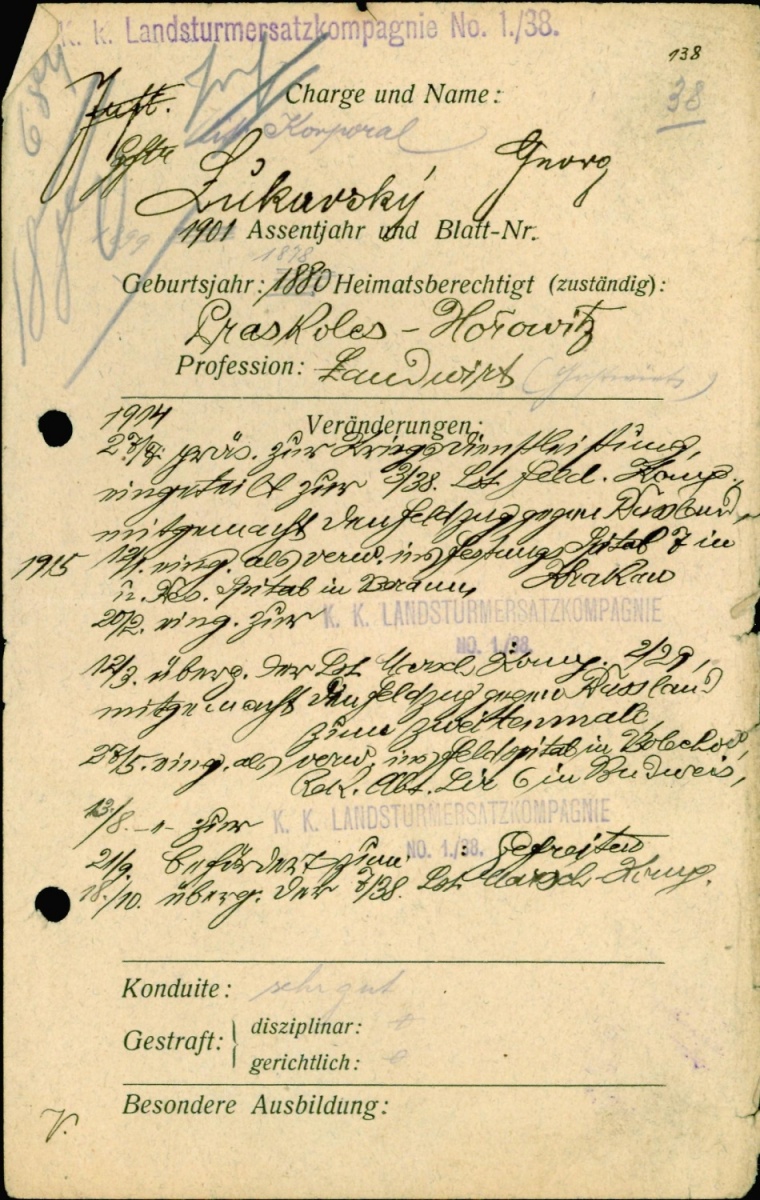 K. k. Landsturmersatzkompagnie No. 1./38.
138
38
Charge und Name:
Inft.
Korporal
Gftr
Georg
Žukavský
1901 Assentjahr und Blatt-Nr.
1899
1878
Geburtsjahr: 1880 Heimatsberechtigt (zuständig):
1880
Praskoles - Hořowitz
Profession: Landwirt
Veränderungen:
1914
27/8. präs. zur Kriegsdienstleistung,
eingeteilt zur 3/38. Lst. Feld. Komp.,
mitgemacht den Feldzug gegen Russland,
1915 12/1. eing. als verw. ins Festungs Spital 7 in
Krakau
u. Res. Spital in
20/2. eing. zur K. K. LANDSTURMERSATZKOMPAGNIE
NO. 1./38.
12/3. überg. der Lst. Marsch Komp. 2/29,
mitgemacht den Feldzug gegen Russland
zum zweitenmale,
27/5. eing. als verw. ins Feldspital in Bolechow,
Rek. Abt. Lir 6 in Budweis,
13/8. -"- zur K. K. LANDSTURMERSATZKOMPAGNIE
NO. 1./38.
21/9. befördert zum: Gefreiten
18./10. überg. der 7/38. Lst. Marsch-Komp.
Konduite: sehr gut
Gestraft: disziplinar:
gerichtlich:
Besondere Ausbildung:
V.